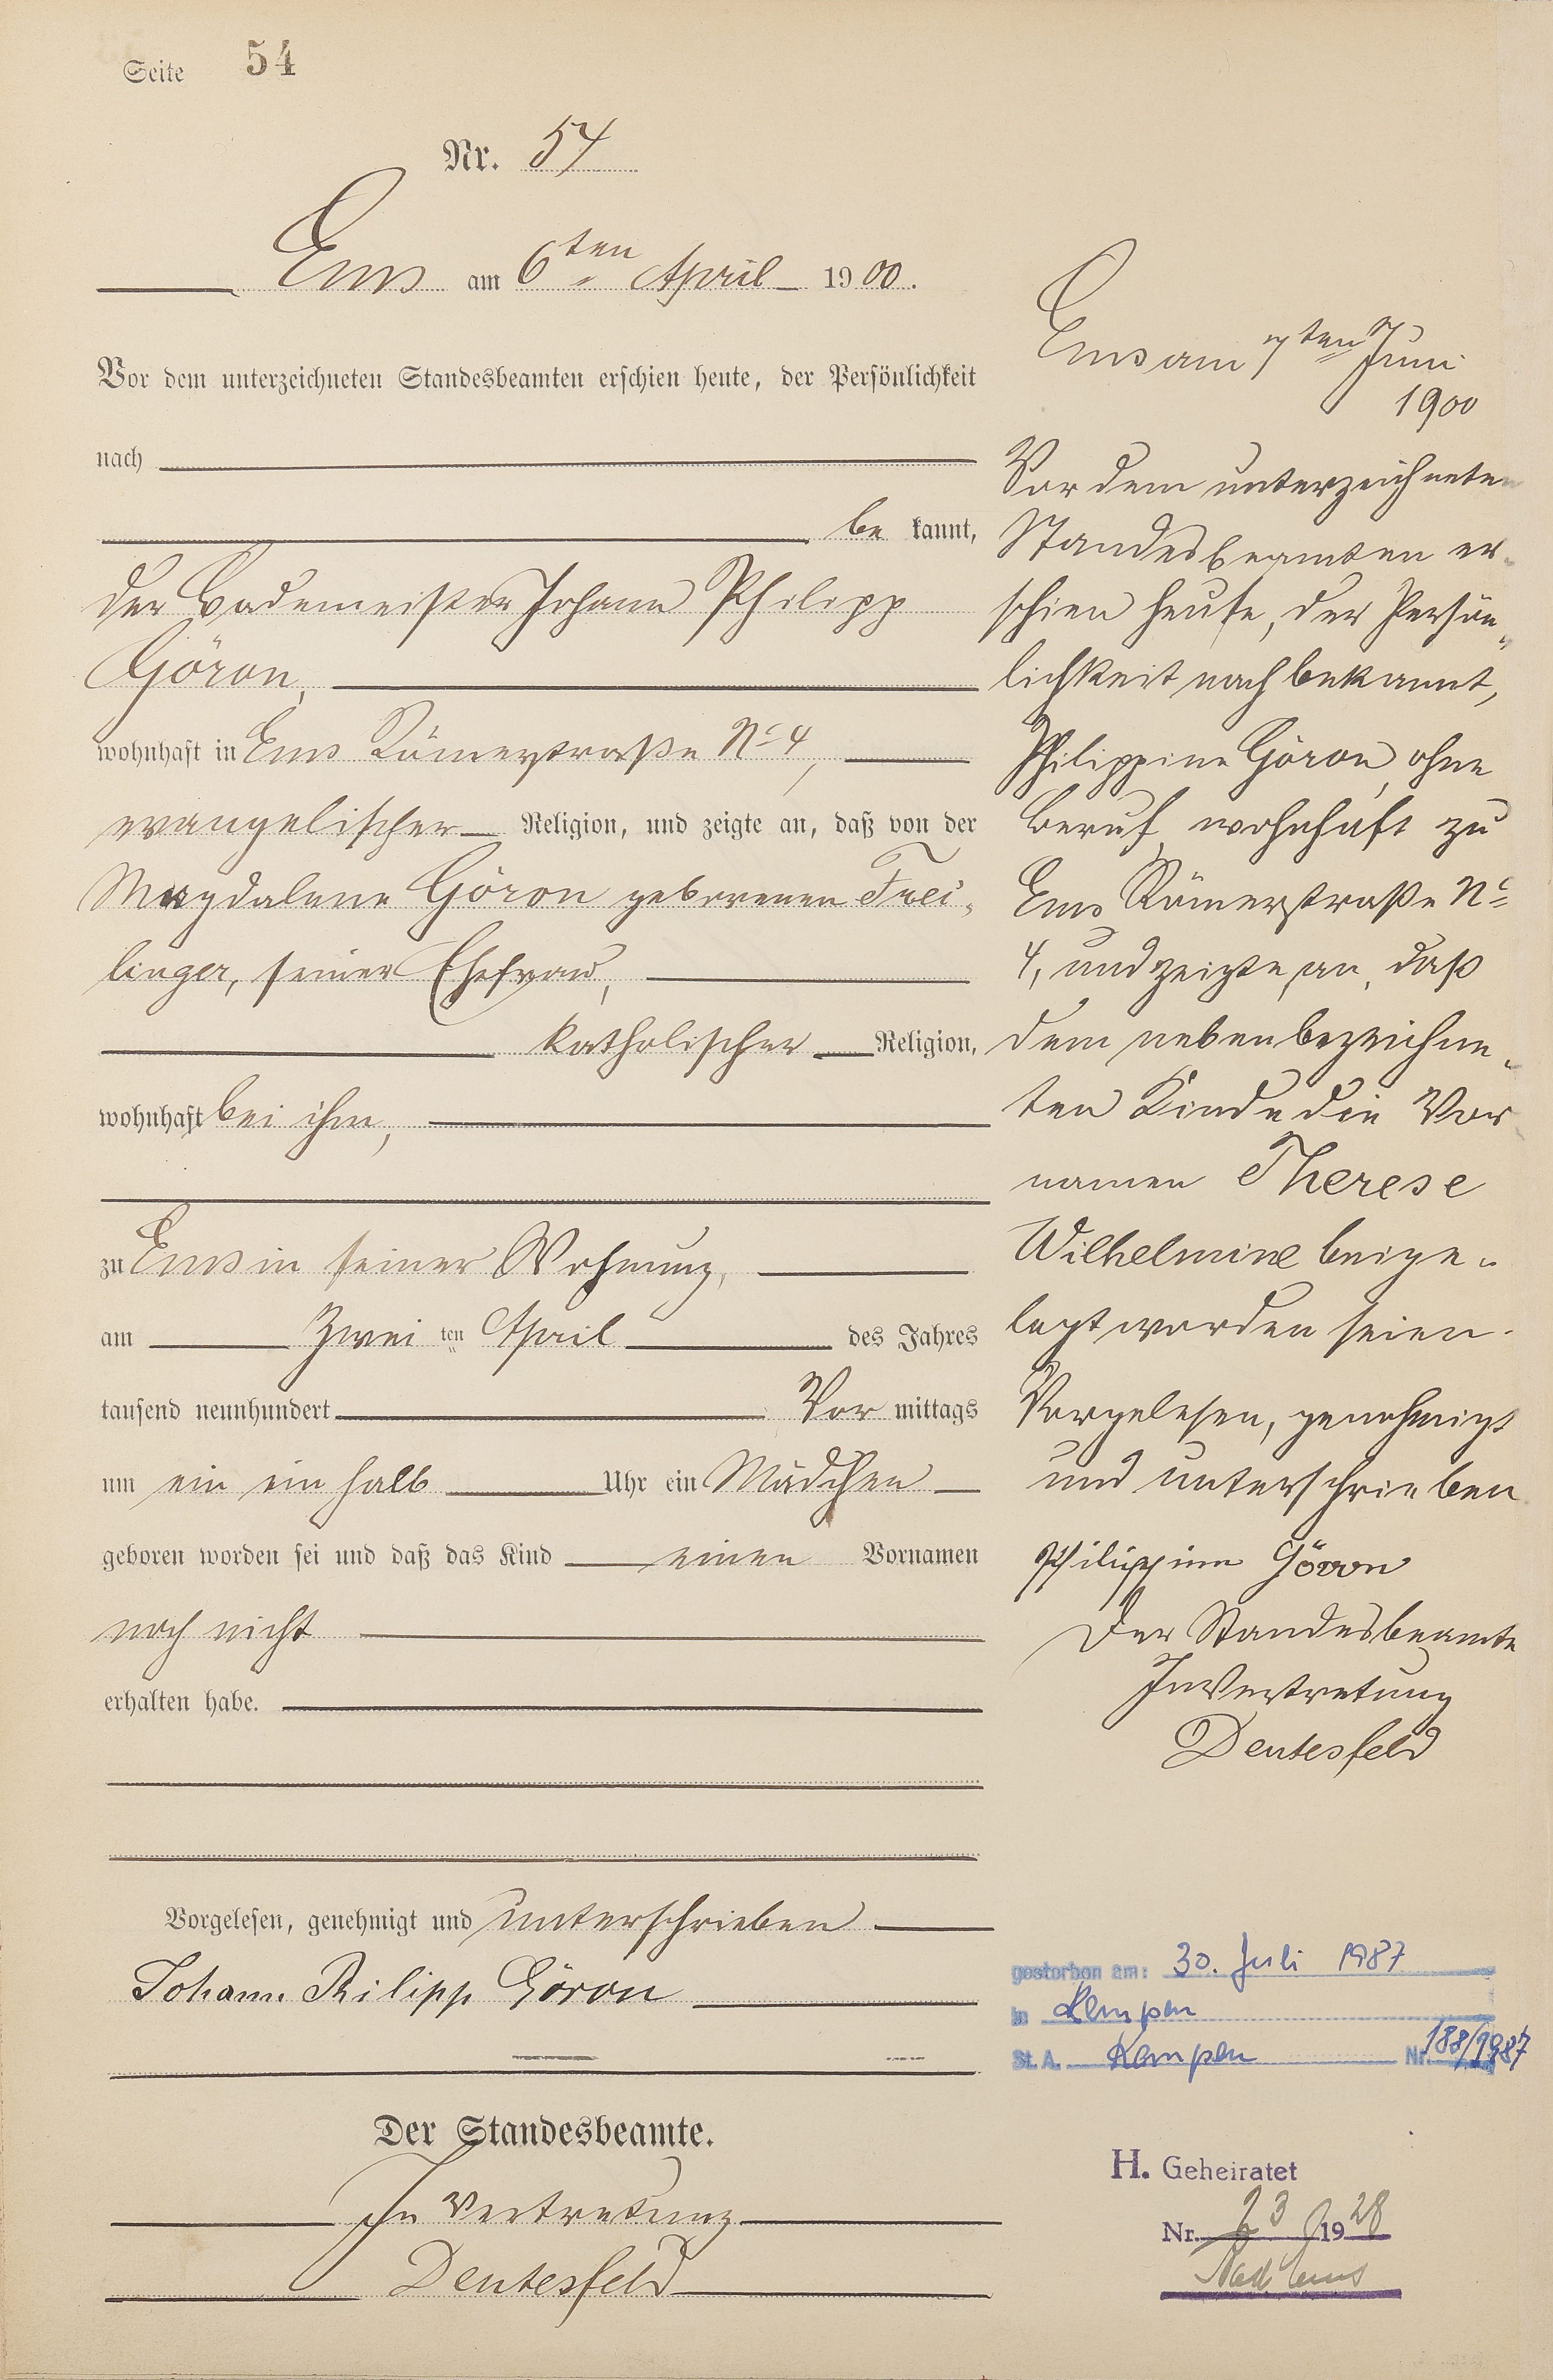 Seite 54
Nr. 54
Ems am 6ten April 1900.
Vor dem unterzeichneten Standesbeamten erschien heute, der Persönlichkeit
nach
be kannt,
der Bademeister Johann Philipp
Göron,
wohnhaft in Ems Römerstraße No 4,
evangelischer Religion, und zeigte an, daß von der
Magdalene Göron geborenen Frei-
linger, seiner Ehefrau,
katholischer Religion,
wohnhaft bei ihm,
zu Ems in seiner Wohnung,
am Zwei ten April des Jahres
tausend neunhundert Vor mittags
um ein ein halb Uhr ein Mädchen
geboren worden sei und daß das Kind einen Vornamen
noch nicht
erhalten habe.
Vorgelesen, genehmigt und unterschrieben
Johann Philipp Göron
Der Standesbeamte.
In Vertretung
Deutesfeld
Ems am 7ten Juni
1900
Vor dem unterzeichneten
Standesbeamten er-
schien heute, der Persön-
lichkeit nach bekannt,
Philippine Göron, ohne
Beruf, wohnhaft zu
Ems Römerstraße No
4, und zeigte an, daß
dem nebenbezeichne-
ten Kinde die Vor
namen Therese
Wilhelmine beige-
legt worden seien.
Vorgelesen, genehmigt
und unterschrieben
Philippine Göron
Der Standesbeamte
In Vertretung
Deutesfeld
gestorben am: 30. Juli 1987
in Kempen
St. A. Kempen Nr. 188/1987
H. Geheiratet
Nr. 23 1928
Bad Ems